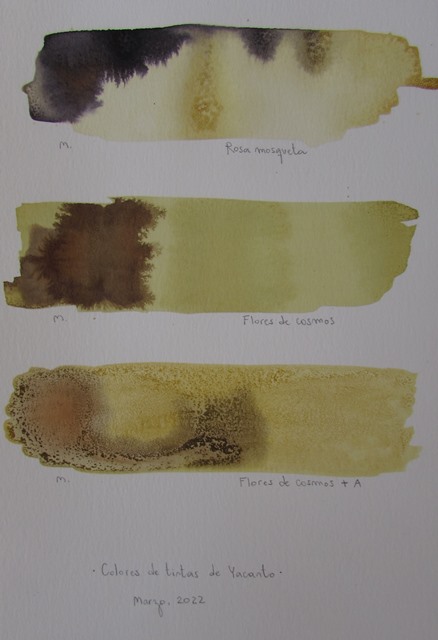 m. Rosa mosqueta
m. Flores de cosmos
m. Flores de cosmos + A
· Colores de tintas de Yacanto ·
Marzo, 2022